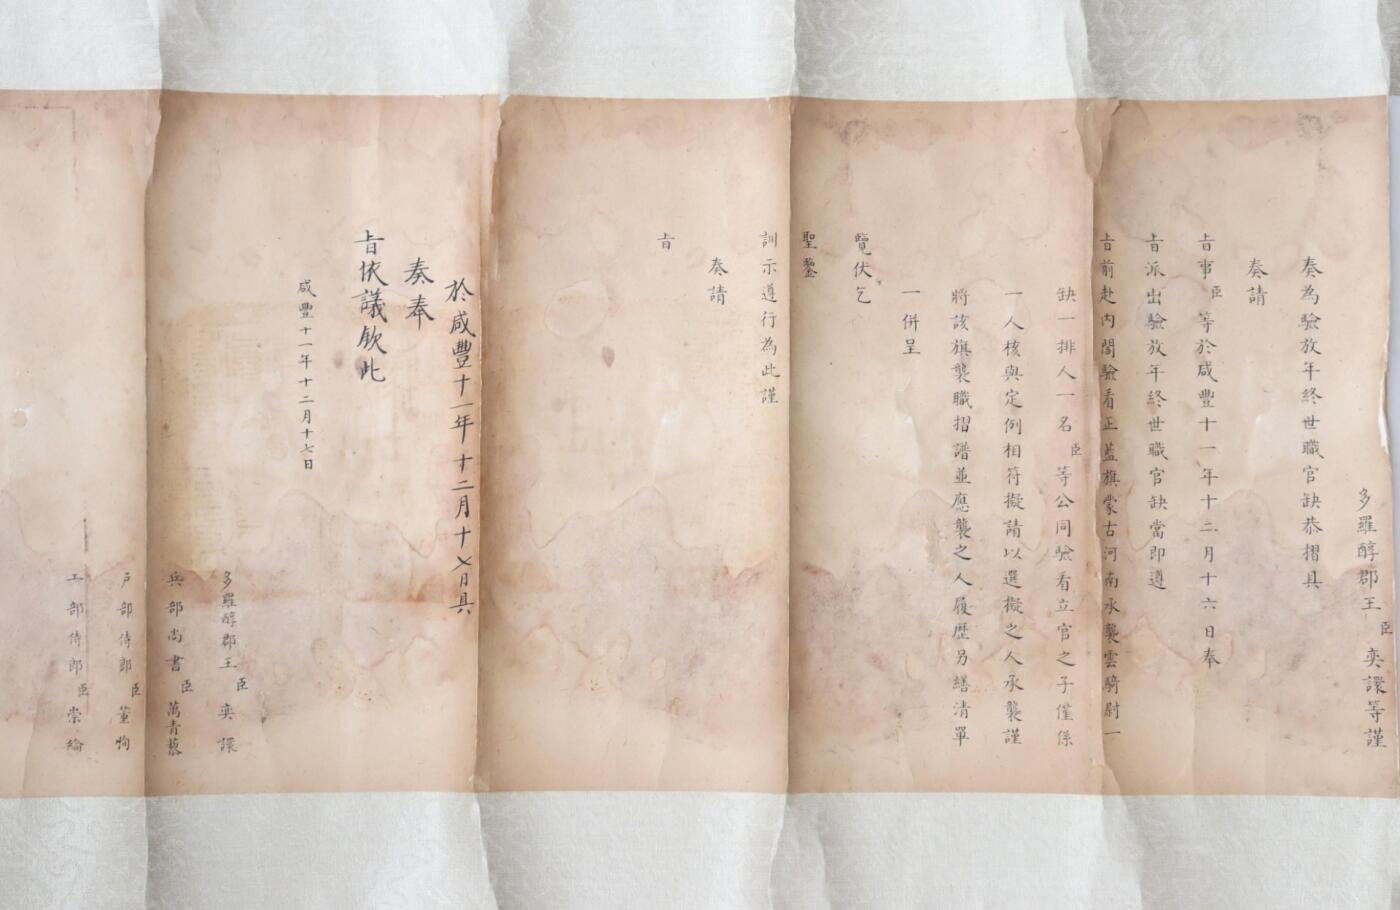 多羅醇郡王臣奕譞等謹
奏為驗放年終世職官缺恭摺具
奏請
旨事臣等於咸豐十一年十二月十六日奉
旨派出驗放年終世職官缺當即遵
旨前赴內閣驗看正藍旗蒙古河南承襲雲騎尉一
缺一排人一名臣等公同驗看立官之子僅係
一人核與定例相符擬請以選擬之人承襲謹
將該旗襲職摺譜並應襲之人履歷另繕清單
一併呈
覽伏乞
聖鑒
訓示遵行為此謹
奏請
旨
於咸豐十一年十二月十七日具
奏奉
旨依議欽此
咸豐十一年十二月十七日
多羅醇郡王臣奕譞
兵部尚書臣萬青藜
戶部侍郎臣董恂
工部侍郎臣崇綸